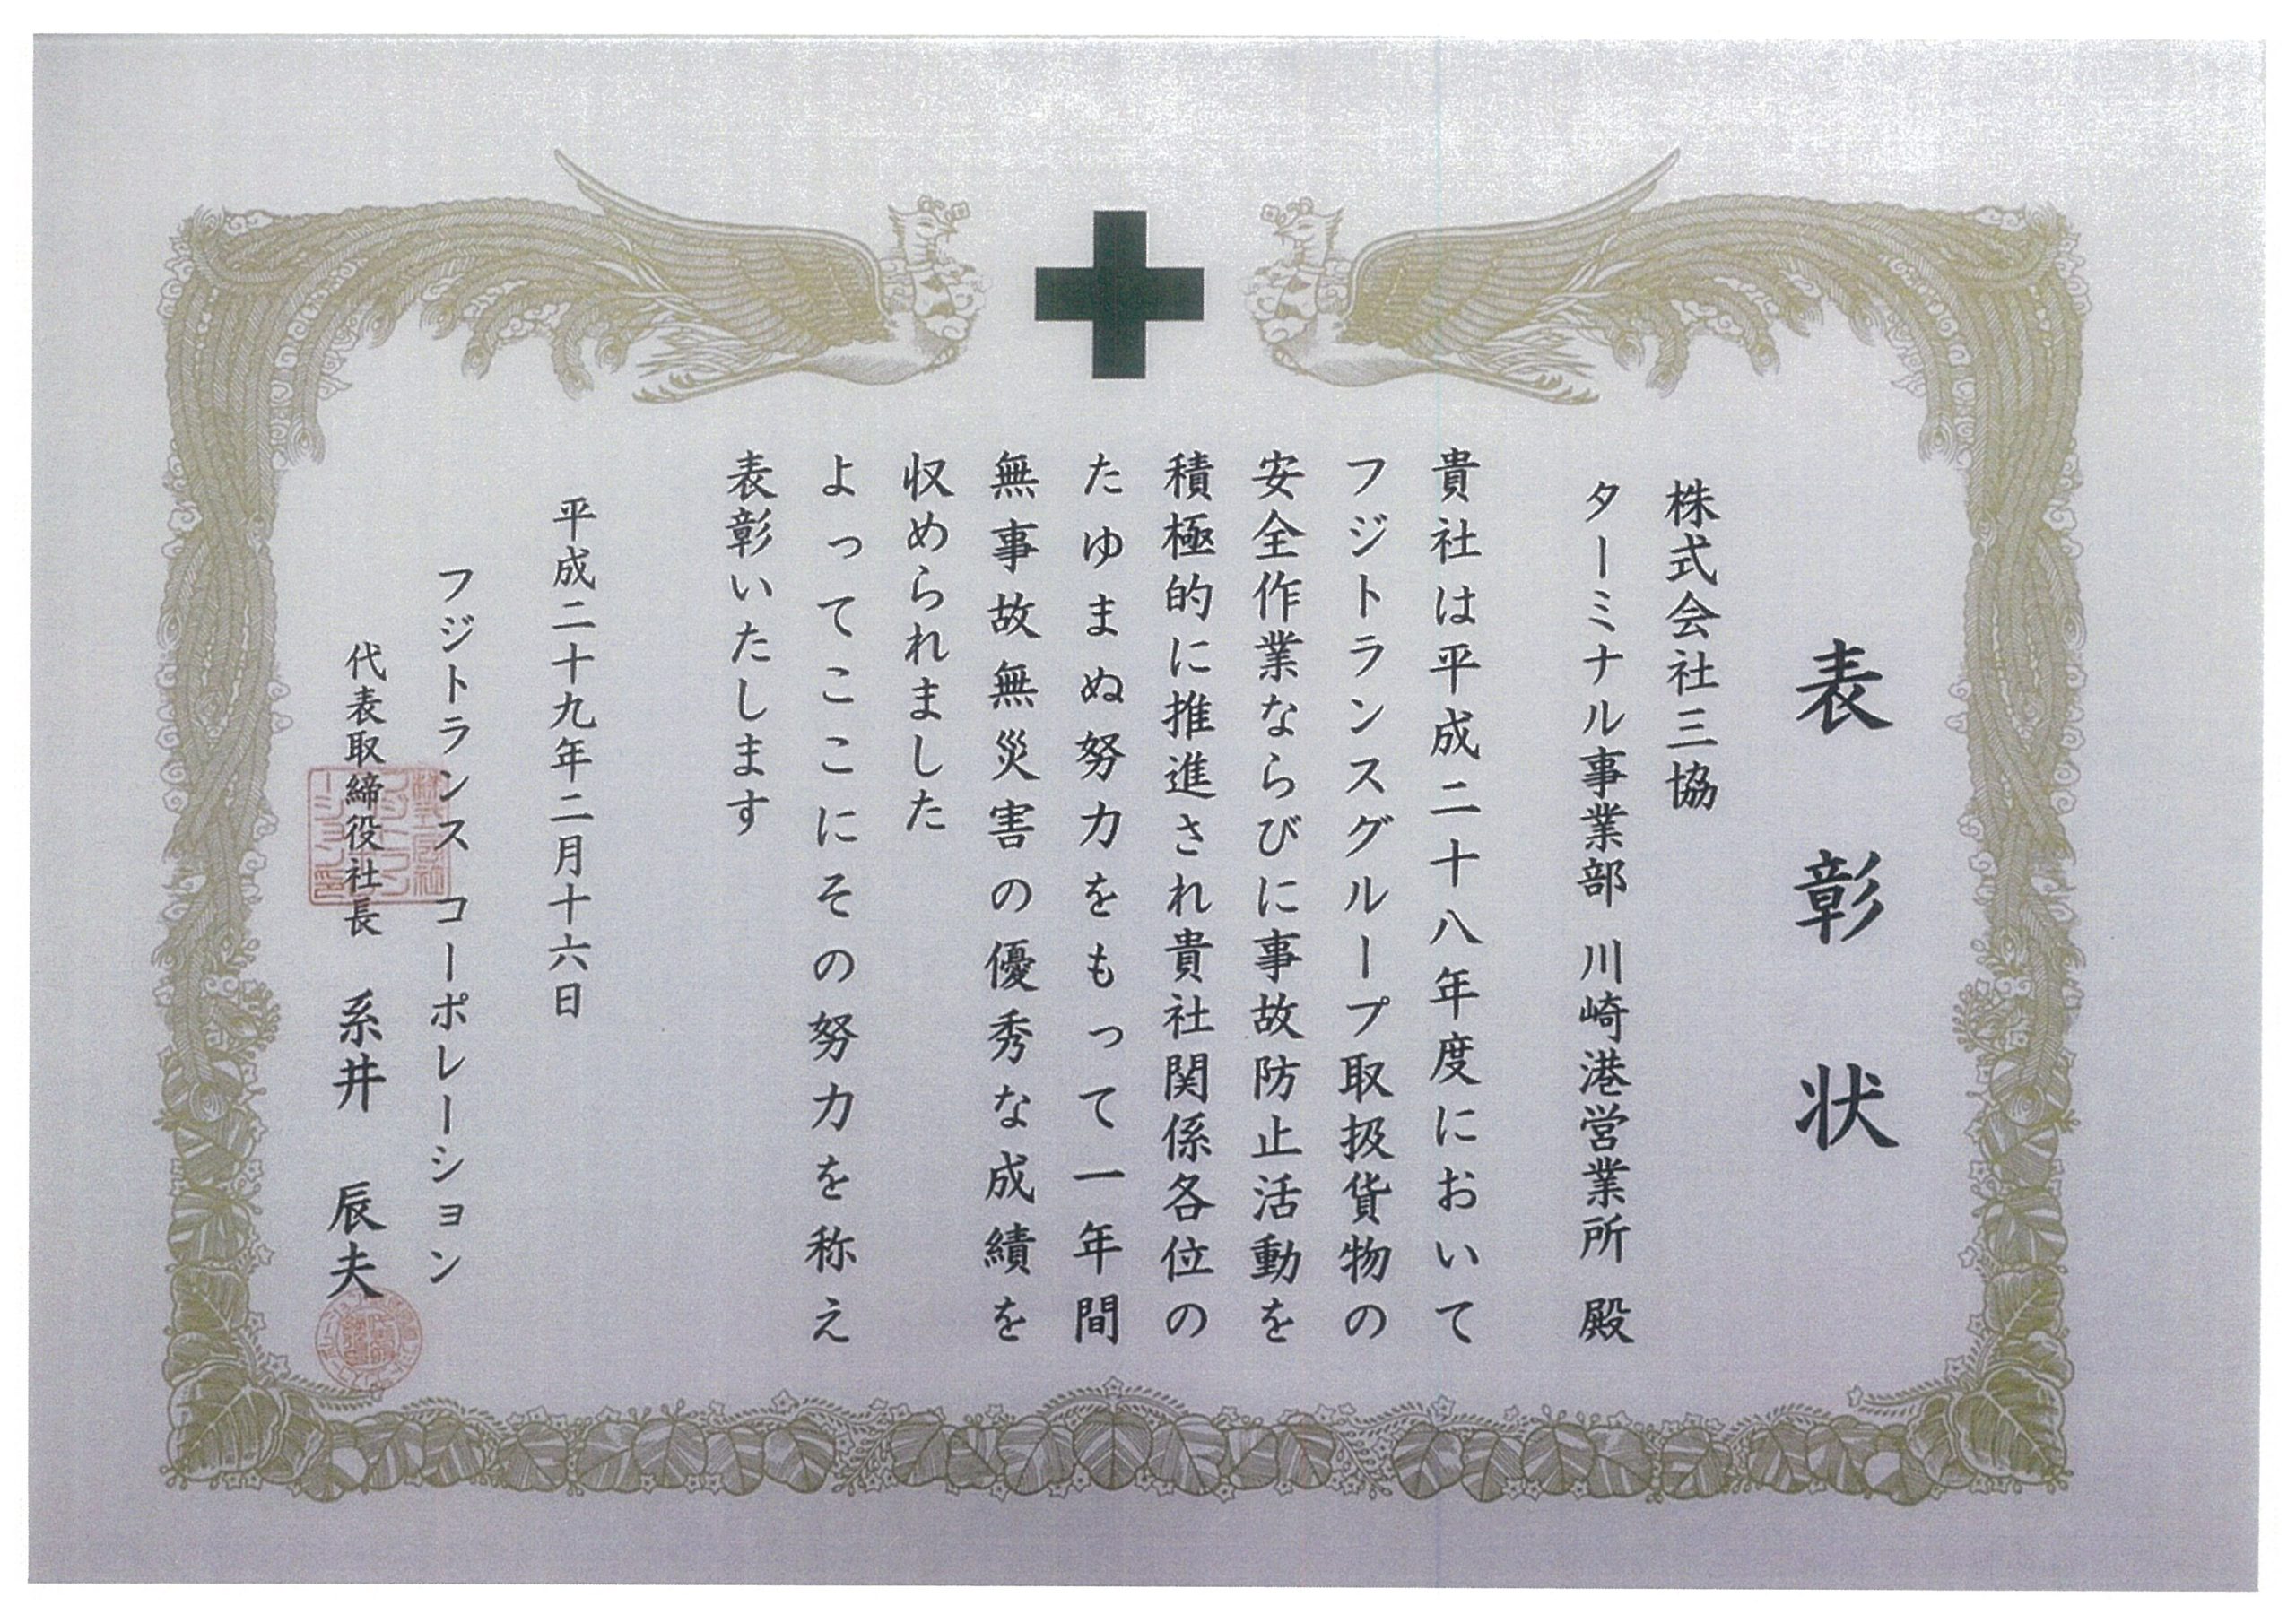 表彰状
株式会社三協
ターミナル事業部 川崎港営業所 殿
貴社は平成二十八年度において
フジトランスグループ取扱貨物の
安全作業ならびに事故防止活動を
積極的に推進され貴社関係各位の
たゆまぬ努力をもって一年間
無事故無災害の優秀な成績を
収められました
よってここにその努力を称え
表彰いたします
平成二十九年二月十六日
フジトランス コーポレーション
代表取締役社長 系井 辰夫